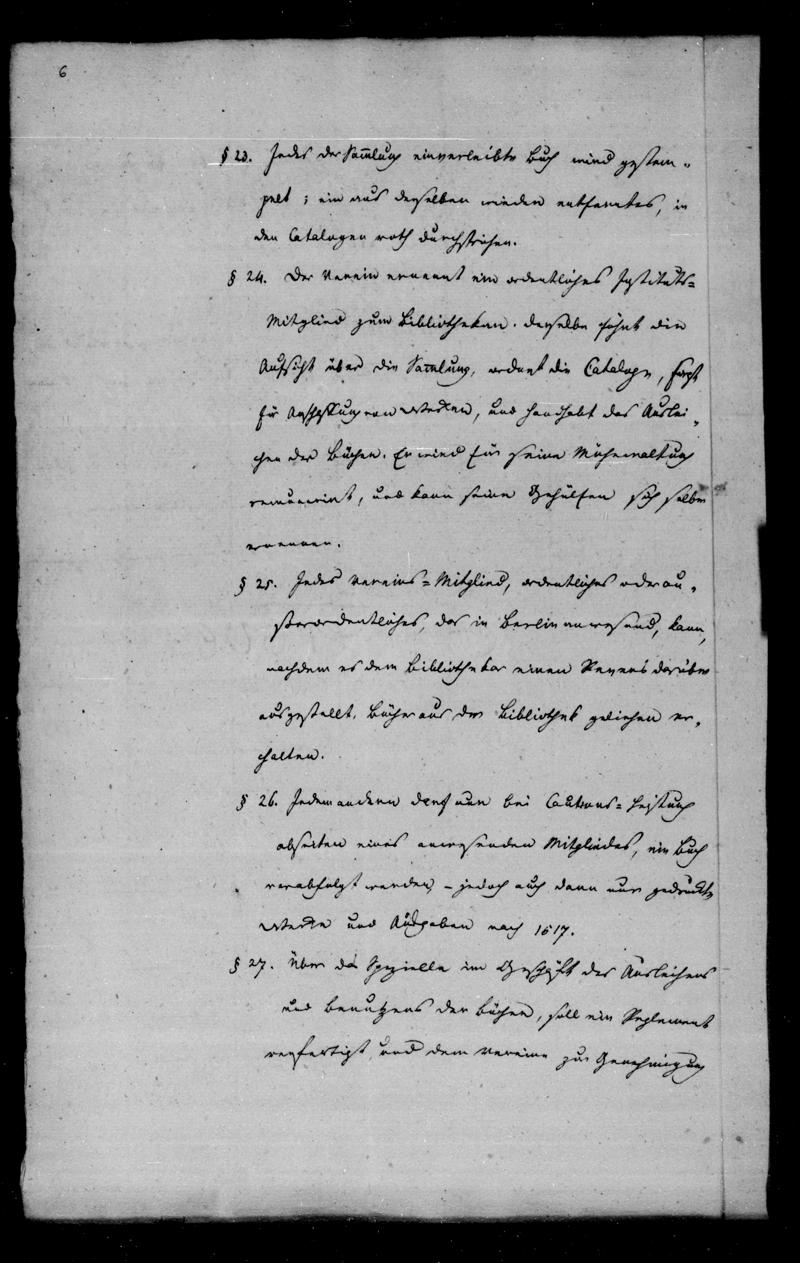 6
§ 23. Jedes der Sam̄lung einverleibte Buch wird gestem-
pelt; ein aus derselben wieder entferntes, in
den Catalogen roth durchstrichen.
§ 24. Der Verein ernennt ein ordentliches Instituts=
Mitglied zum Bibliothekar. Derselbe führt die
Aufsicht über die Sam̄lung, ordnet die Cataloge, sorgt
für Anschaffung von Werken, und handhabt das Auslei-
hen der Bücher. Er wird für seine Mühewaltung
remunerirt, und kann seine Gehülfen sich selber
ernennen.
§ 25. Jedes Vereins=Mitglied, ordentliches oder au-
sserordentliches, das in Berlin anwesend, kann,
nachdem es dem Bibliothekar einen Revers darüber
ausgestellt, Bücher aus der Bibliothek geliehen er-
halten.
§ 26. Jedem andern darf nur bei Cautions=Leistung
abseiten eines anwesenden Mitgliedes, ein Buch
verabfolgt werden, – jedoch auch dann nur gedruckte
Werke und Ausgaben nach 1517.
§ 27. Über das Spezielle im Geschäft des Ausleihens
und Benutzens der Bücher, soll ein Reglement
verfertigt, und dem Vereine zur Genehmigung